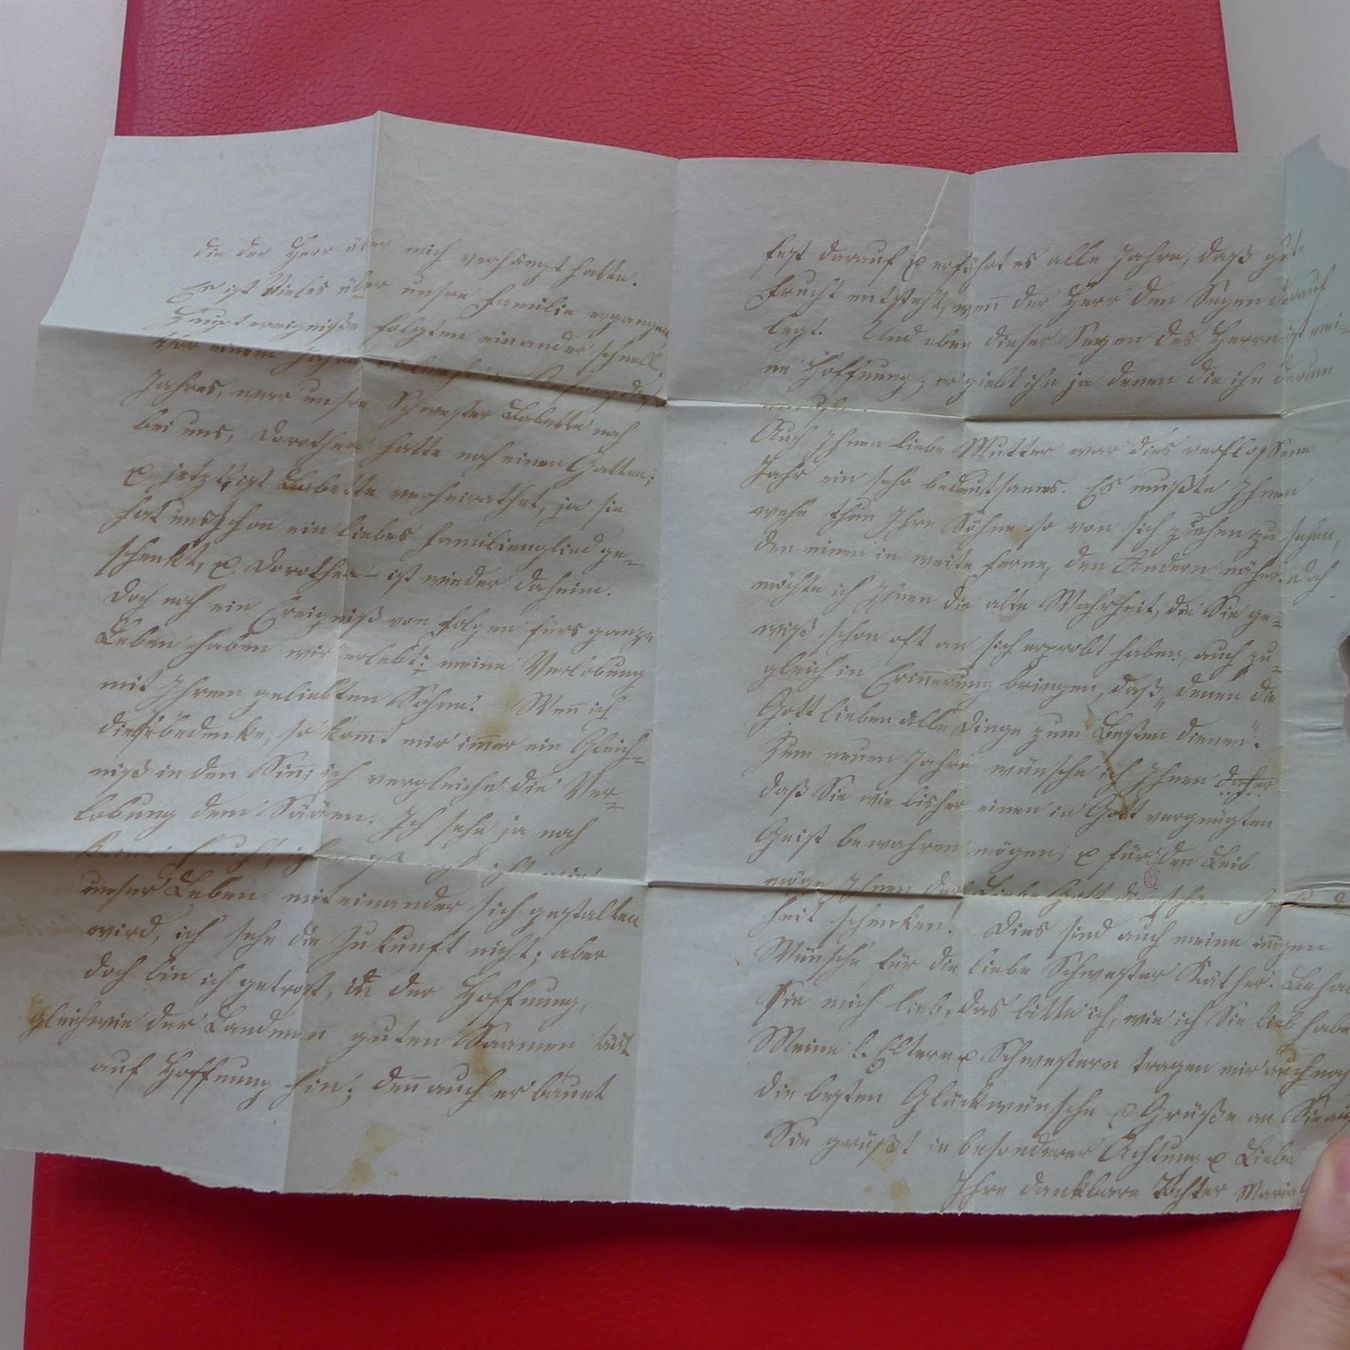 die der Herr über mich verhängt hatte.
Es ist Vieles über unsre Familie ergangen
Hauptereigniße folgten einander schnell
Vor einem Jahr
Jahres, war unsre Schwester Babette noch
bei uns, Dorothea hatte noch einen Gatten;
& jetzt ist Babette verheirathet, ja sie
hat uns schon ein liebes Familienglied ge-
schenkt, & Dorothea – ist wieder daheim.
Doch noch ein Ereigniß von Folgen fürs ganze
Leben haben wir erlebt: meine Verlobung
mit Ihrem geliebten Sohne! Wenn ich
dieß bedenke, so komt mir immer ein Gleich-
niß in den Sinn; ich vergleiche die Ver-
lobung dem Säen. Ich sehe ja noch
keine Frucht, ich weiß noch nicht wie
unser Leben miteinander sich gestalten
wird, ich sehe die Zukunft nicht; aber
doch bin ich getrost, in der Hoffnung,
gleichwie der Landman guten Saamen säet
auf Hoffnung hin; denn auch er bauet
fest darauf & erfährt es alle Jahre, daß gute
Frucht entsteht, wenn der Herr den Segen darauf
legt. Und eben dieser Segen des Herrn ist mei-
ne Hoffnung; er giebt ihn ja denen die ihn darum
Auch Ihnen liebe Mutter war dies verflossene
Jahr ein sehr bedeutsames. Es mußte Ihnen
wehe thun Ihre Söhne so von sich ziehen zu sehen,
den einen in weite Ferne, den Andern näher. Doch
möchte ich Ihnen die alte Wahrheit, die Sie ge-
wiß schon oft an sich erprobt haben, auch zu-
gleich in Erinnerung bringen, daß „denen die
Gott lieben alle Dinge zum Besten dienen“.
Zum neuen Jahre wünsche ich Ihnen daher
daß Sie wie bisher einen in Gott vergnügten
Geist bewahren mögen; & für den Leib
möge Ihnen der liebe Gott
heit schenken! Dies sind auch meine innigen
Wünsche für die liebe Schwester Käther. Behal
Sie mich lieb, das bitte ich, wie ich Sie lieb habe
Meine l. Eltern & Schwestern tragen mir auch noch
die besten Glückwünsche & Grüße an Sie auf
Sie grüßt in besonderer Achtung & Liebe
Ihre dankbare Tochter Maria